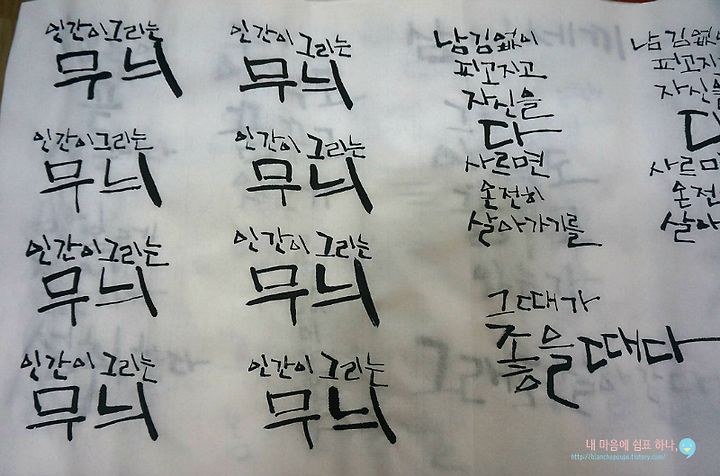 인간이 그리는
무늬
인간이 그리는
무늬
인간이 그리는
무늬
인간이 그리는
무늬
인간이 그리는
무늬
인간이 그리는
무늬
인간이 그리는
무늬
인간이 그리는
무늬
남김없이
피고지고
자신을
다
사르며
온전히
살아가기를
그때가
좋을때다
남김없이
피고지
자신을
다
사르며
온전
살아
내 마음에 쉼표 하나,
http://blanchepoupe.tistory.com/